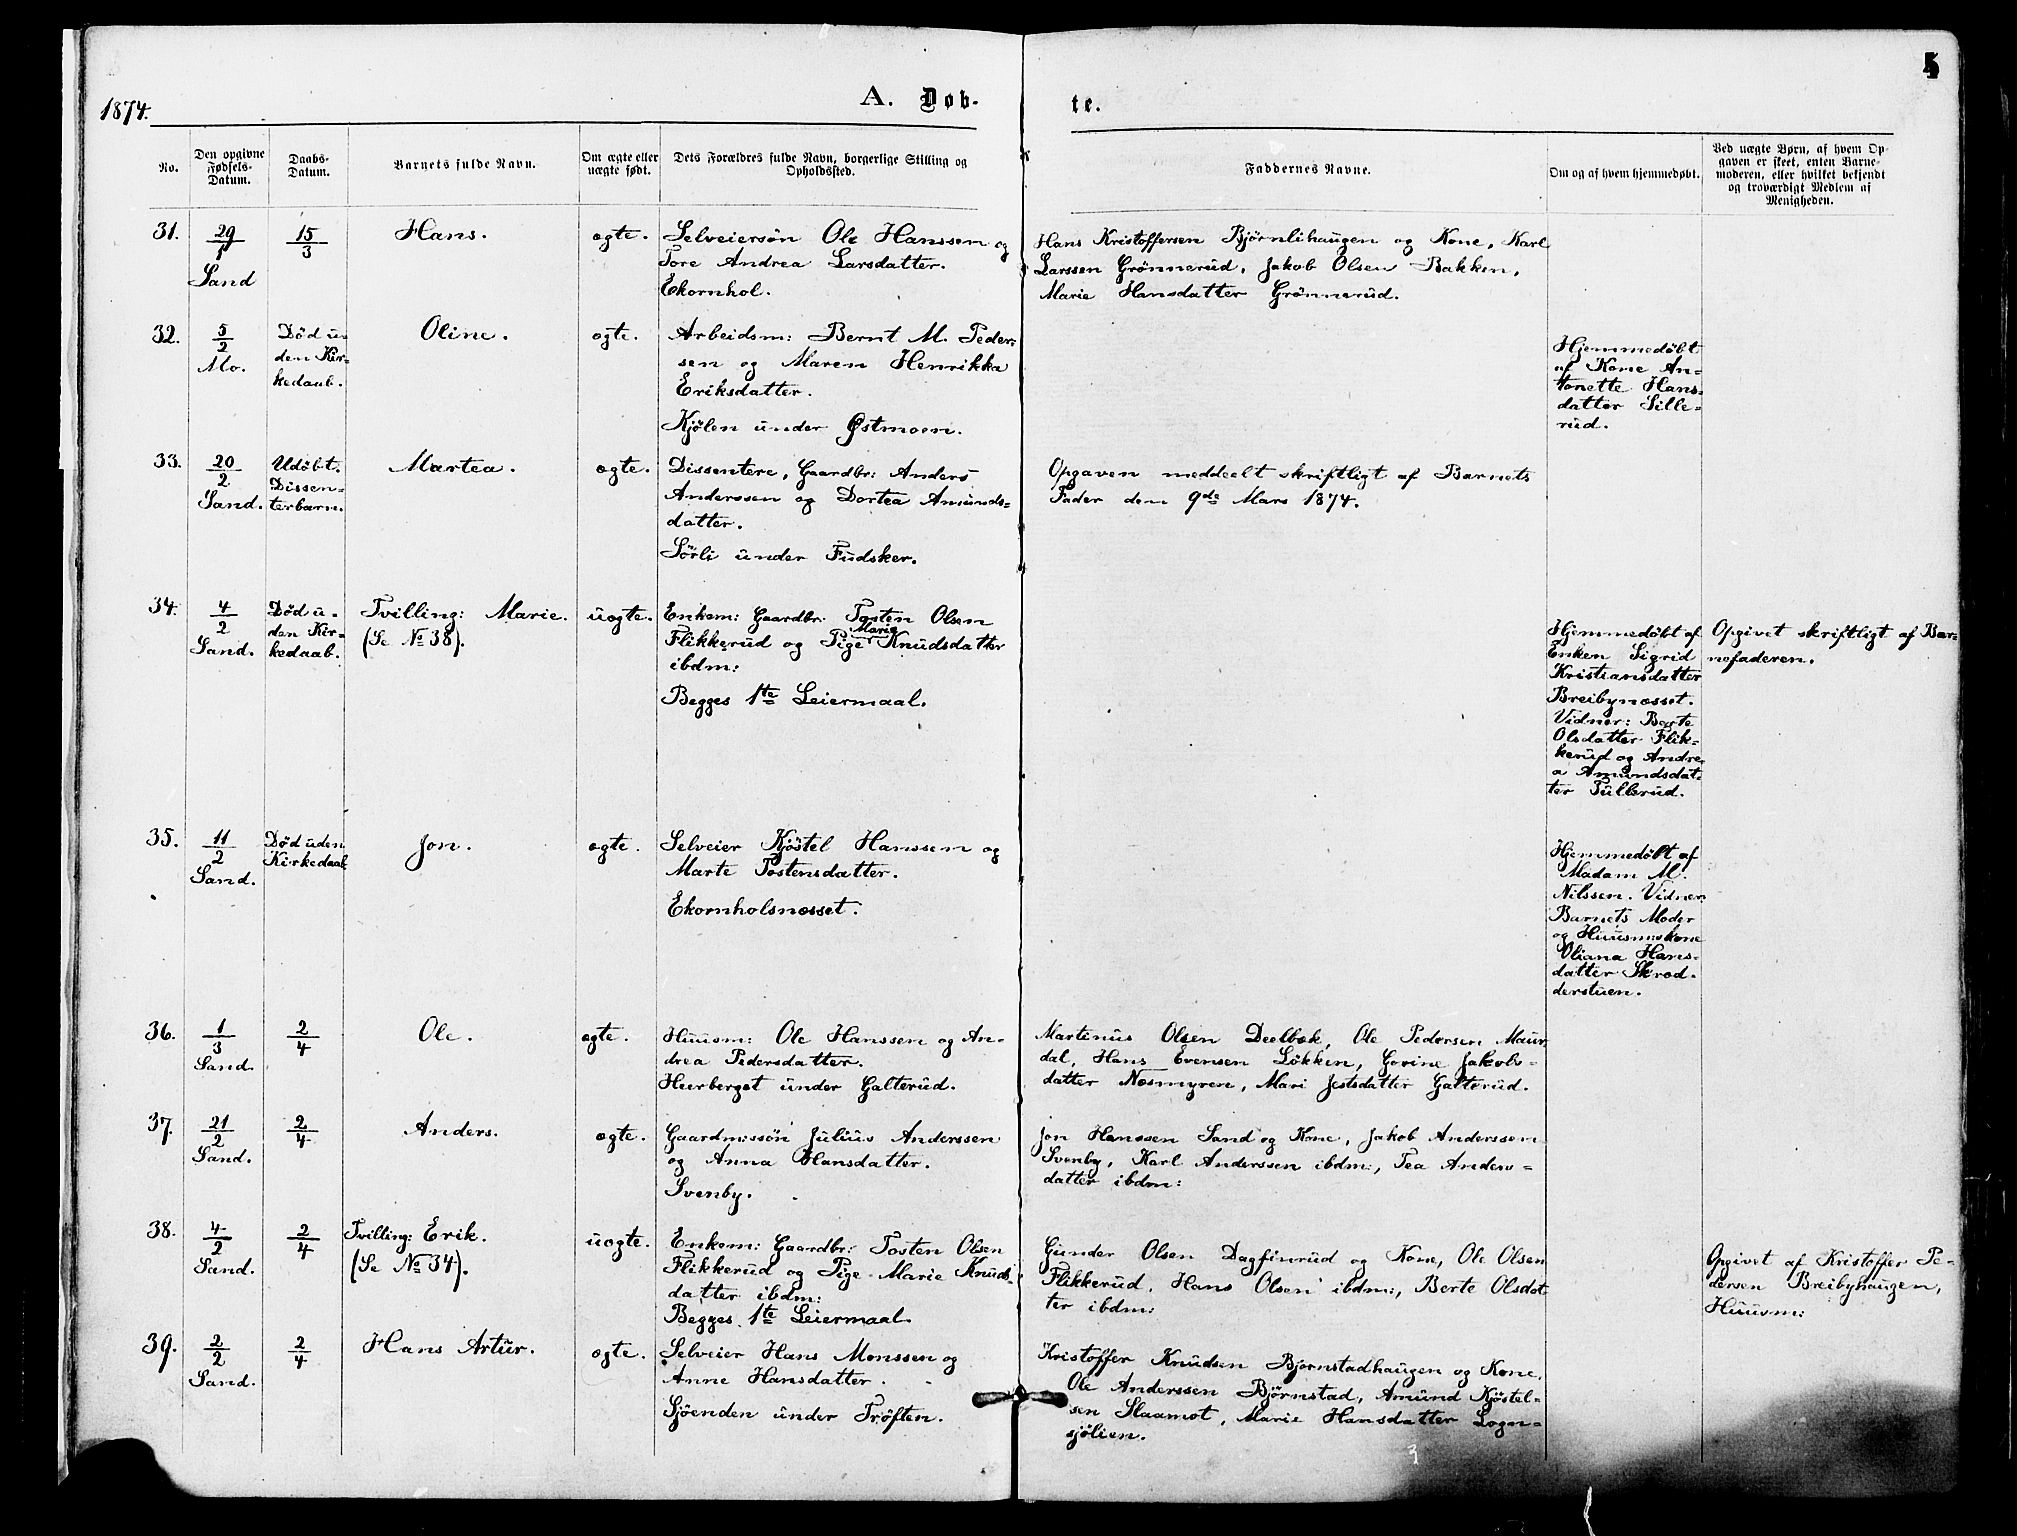 1874.
A. Døb-
te.
5
No.
Den opgivne
Fødsels-
Datum.
Daabs-
Datum.
Barnets fulde Navn.
Om ægte eller
uægte født.
Dets Forældres fulde Navn, borgerlige Stilling og
Opholdssted.
Faddernes Navne.
Om og af hvem hjemmedøbt.
Ved uægte Børn, af hvem Op-
gaven er skeet, enten Barne-
moderen, eller hvilket bekjendt
og troværdigt Medlem af
Menigheden.
31.
29
1
Sand
15
3
Hans.
ægte.
Selveiersøn Ole Hanssen og
Tore Andrea Larsdatter.
Ekornhol.
Hans Kristoffersen Bjørnlihaugen og Kone, Karl
Larssen Grønnerud, Jakob Olsen Bakken,
Marie Hansdatter Grønnerud.
32.
5
2
Mo.
Død u-
den Kir-
kedaab.
Oline.
ægte.
Arbeidsm: Bernt M. Peder-
sen og Maren Henrikka
Eriksdatter.
Kjølen under Østmoen.
Hjemmedøbt
af Kone An-
tonette Hans-
datter Sille-
rud.
33.
20
2
Sand.
Udøbt.
Dissen-
terbarn.
Martea.
ægte.
Dissentere, Gaardbr: Anders
Anderssen og Dortea Amunds-
datter.
Sörli under Fudsker.
Opgaven meddeelt skriftligt af Barnets
Fader den 9de Mars 1874.
34.
4
2
Sand.
Død u-
den Kir-
kedaab.
Tvilling: Marie.
(Se No 38).
uægte.
Enkem: Gaardbr: Tosten Olsen
Flikkerud og Pige Marie Knudsdatter
ibdm:
Begges 1te Leiermaal.
Hjemmedøbt af
Enken Sigrid
Kristiansdatter
Breibynæsset.
Vidner: Berte
Olsdatter Flik-
kerud og Andre-
a Amundsdat-
ter Tullerud.
Opgivet skriftligt af Bar-
nefaderen.
35.
11
2
Sand.
Død uden
Kirkedaab
Jon.
ægte.
Selveier Kjøstel Hanssen og
Marte Tostensdatter.
Ekornholsnæsset.
Hjemmedøbt af
Madam M.
Nilssen. Vidner
Barnets Moder
og Huusmskone
Oliana Hans-
datter Skræd-
derstuen.
36.
1
3
Sand.
2
4
Ole.
ægte.
Huusm: Ole Hanssen og An-
drea Pedersdatter.
Hurberget under Galterud.
Martinus Olsen Deelbæk, Ole Pedersen Maur-
dal, Hans Evensen Løkken, Gorine Jakobs-
datter Næsmyren, Mari Jestsdatter Galterud.
37.
21
2
Sand.
2
4
Anders.
ægte.
Gaardm:søn Julius Anderssen
og Anna Hansdatter.
Svenby.
Jon Hanssen Sand og Kone, Jakob Anderssen
Svenby, Karl Anderssen ibdm:, Tea Anders-
datter ibdm:
38.
4
2
Sand.
2
4
Tvilling: Erik.
(Se No 34).
uægte.
Enkem: Gaardbr: Tosten Olsen
Flikkerud og Pige Marie Knuds-
datter ibdm:
Begges 1te Leiermaal.
Gunder Olsen Dagfinrud og Kone, Ole Olsen
Flikkerud, Hans Olsen ibdm:, Berte Olsdat
ter ibdm:
Opgivet af Kristoffer Pe-
dersen Breibyhaugen,
Huusm:
39.
2
2
Sand.
2
4
Hans Artur.
ægte.
Selveier Hans Monssen og
Anne Hansdatter.
Sjöenden under Trøften.
Kristoffer Knudsen Bjørnstadhaugen og Kone,
Ole Anderssen Bjørnstad, Amund Kjøstel-
sen Slaamot, Marie Hansdatter Logn-
sjølien.
3